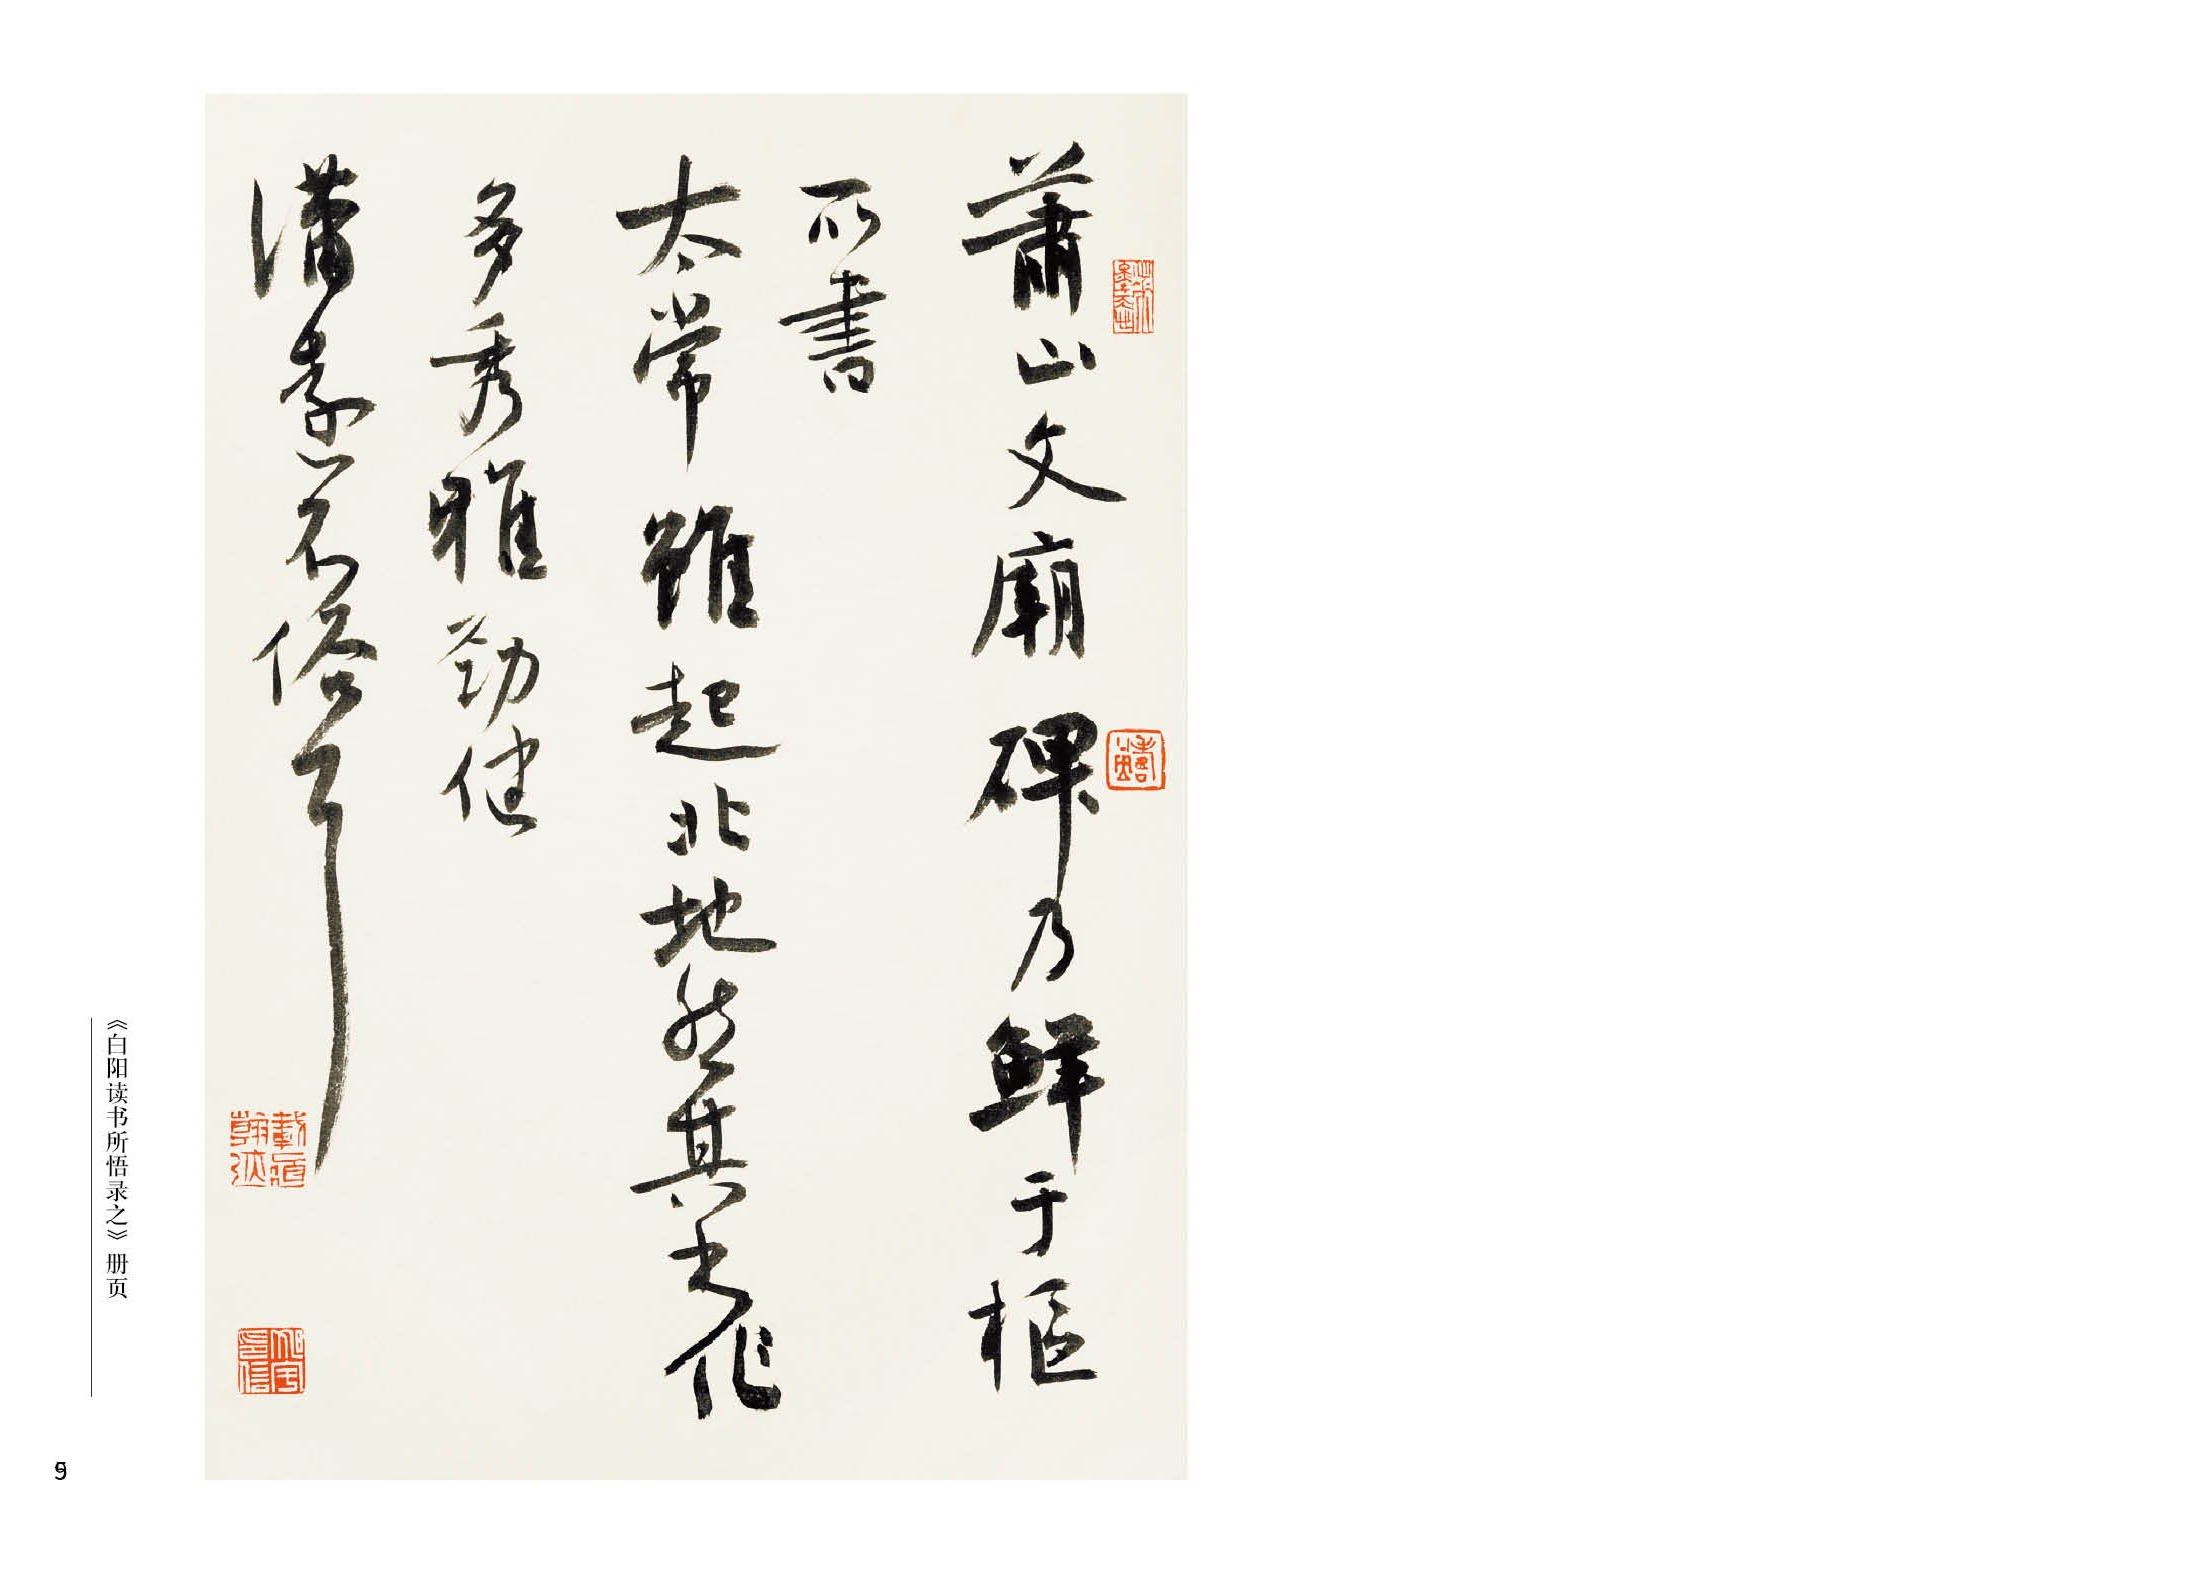 蕭山文廟碑乃鮮于樞
所書
太常雖起北地然其書作
多秀雅勁健
瀟峯不俗耳
《白阳读书所悟录之》册页